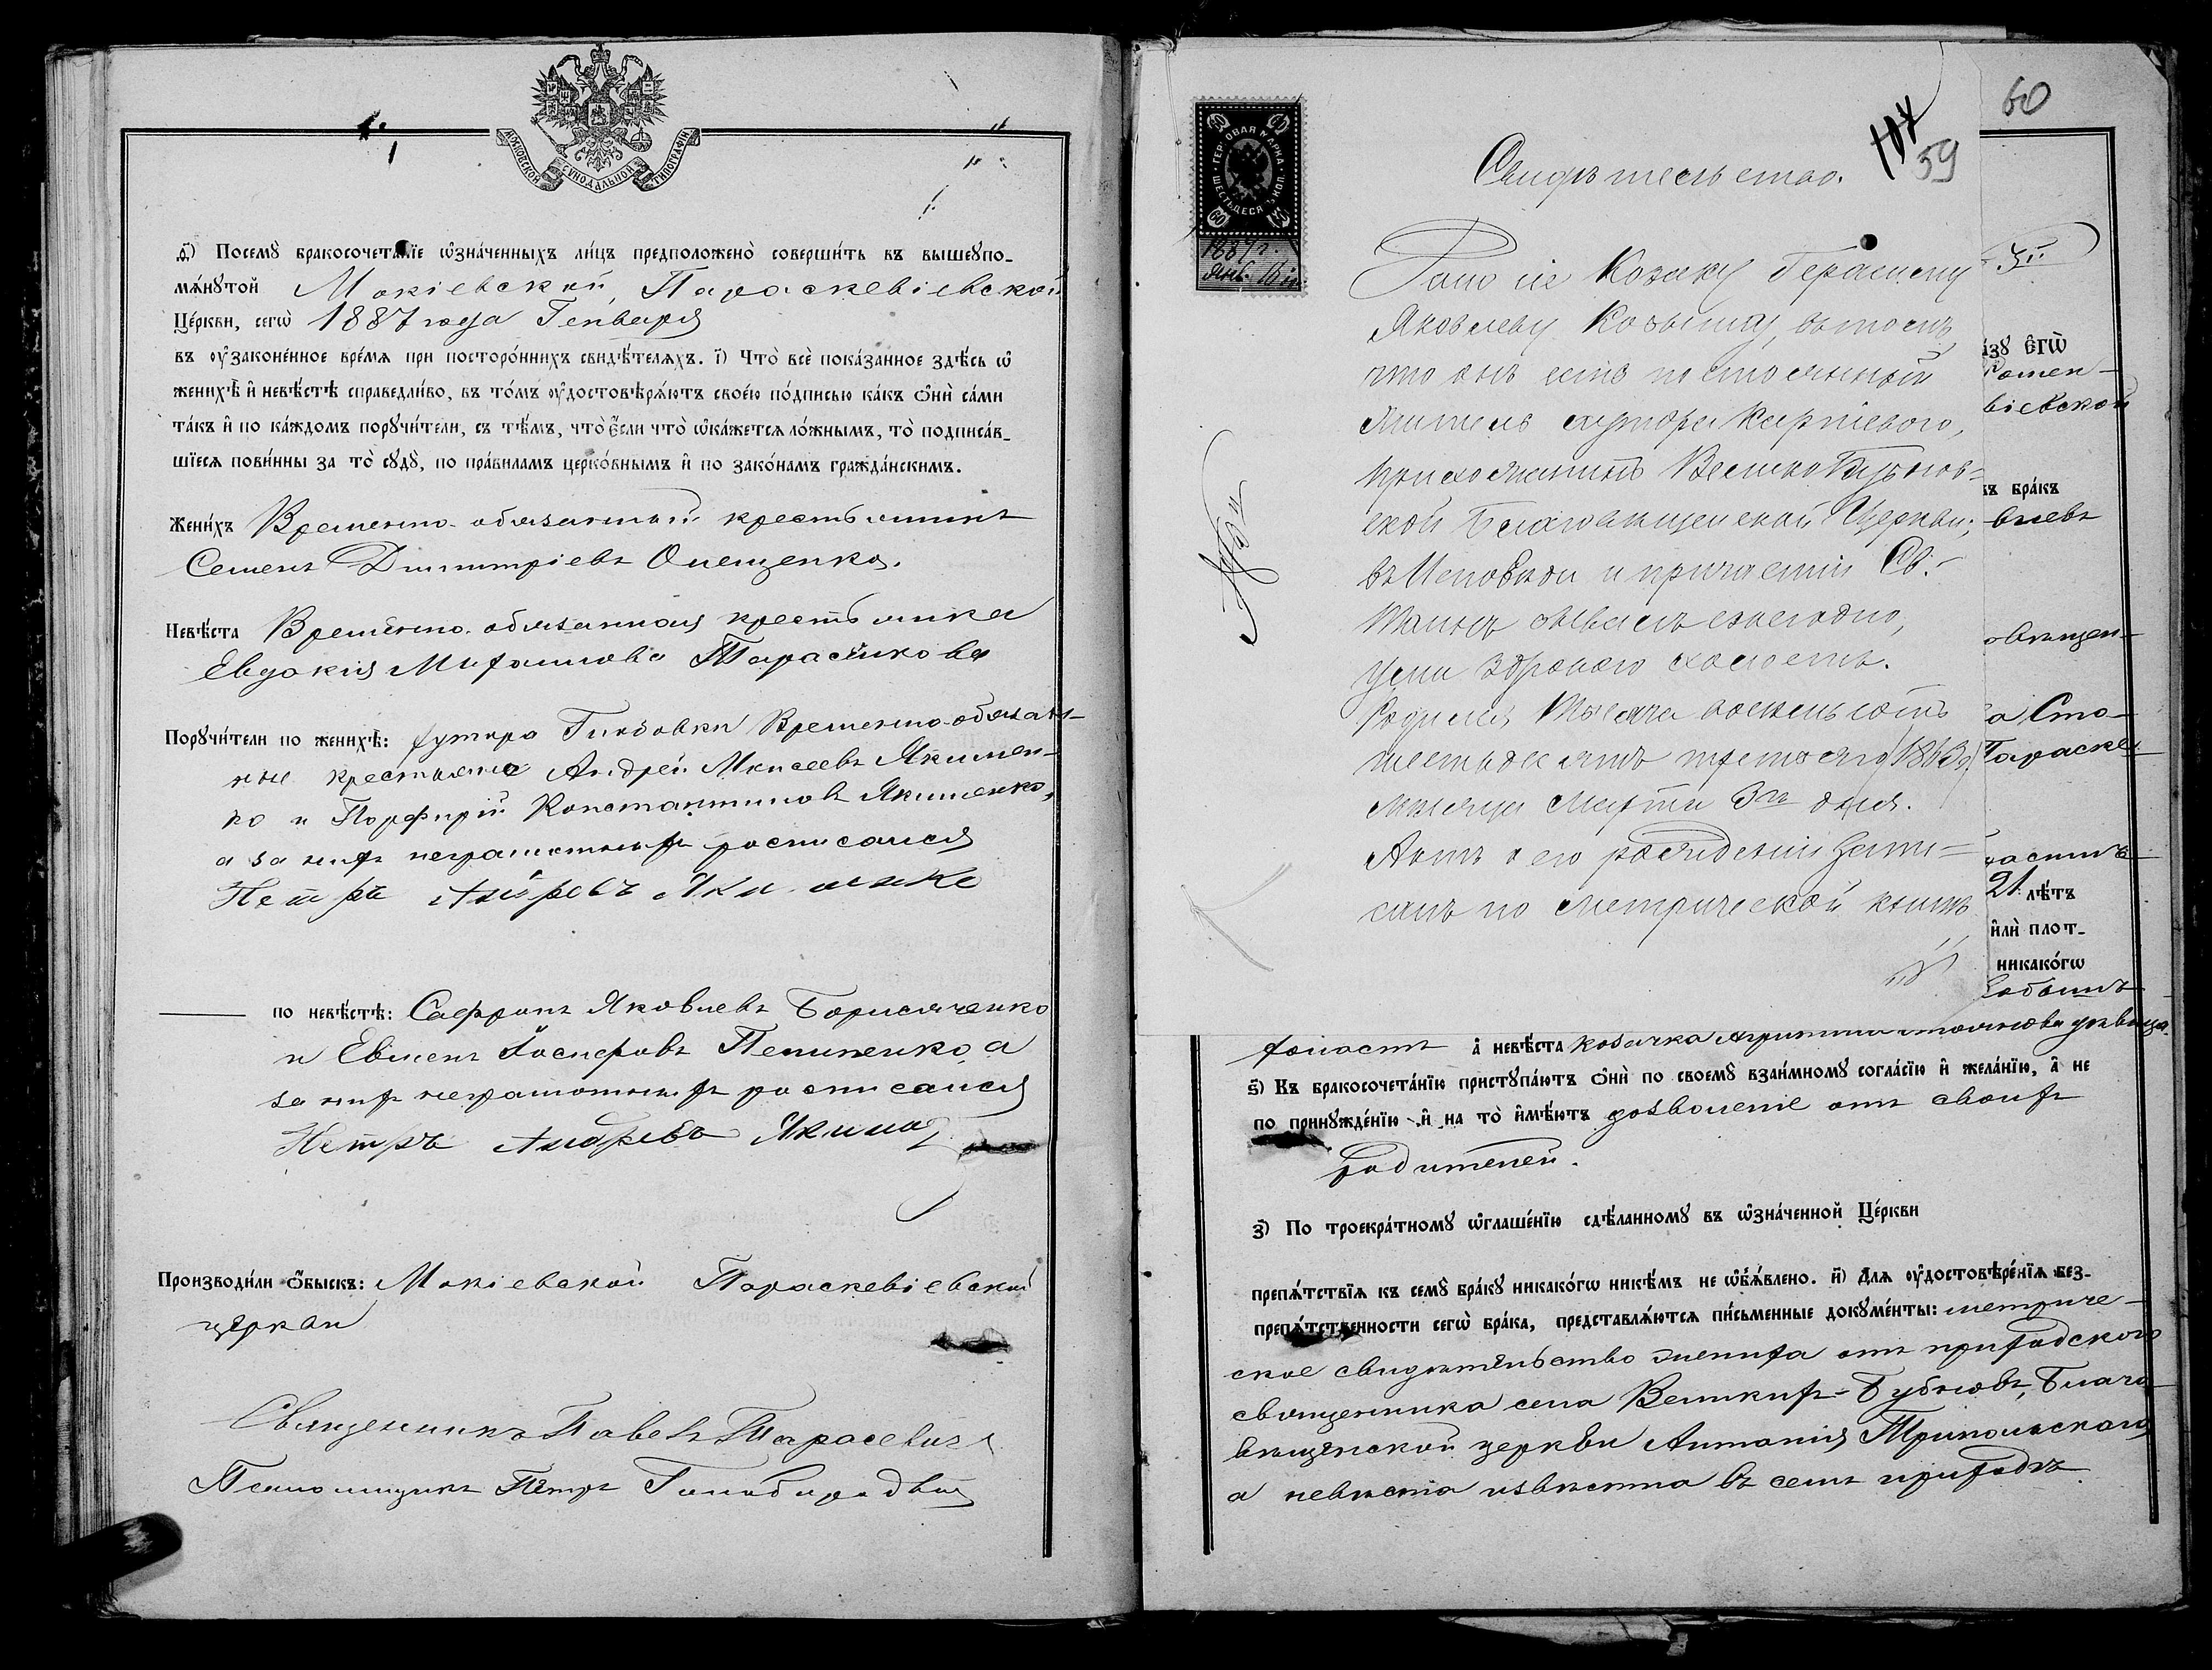 МОСКОВСКОЙ СѴНОДАЛЬНОЙ ТѴПОГРАФІИ
д҃) Посемꙋ̀ бракосочета́нїе ѡ҆зна́ченныхъ ли́цъ предположено̀ соверши́ть въ вышеꙋпо-
мѧ́нꙋтой Мокіевской, Параскевіевской
Це́ркви, сегѡ̀ 1887 года Генваря
въ ᲂу҆зако́ненное вре́мѧ при посторо́ннихъ свидѣ́телѧхъ. і҃) Что̀ всѐ пока́занное здѣ́сь ѡ҆
женихѣ̀ и҆ невѣ́стѣ справедли́во, въ то́мъ ᲂу҆достовѣрѧ́ютъ свое́ю по́дписью ка́къ ѻ҆нѝ са́ми
та́къ и҆ по ка́ждомъ порꙋчи́тели, съ тѣ́мъ, что̀ є҆́сли что̀ ѡ҆ка́жетсѧ ло́жнымъ, то̀ подписа́в-
шїесѧ пови́нны за то̀ сꙋдꙋ̀, по пра́виламъ церко́внымъ и҆ по зако́намъ гражда́нскимъ.
Жени́хъ Временно-обязанный крестьянинъ
Семенъ Димитріевъ Онещенко.
Невѣ́ста Временно-обязанная крестьянка
Евдокія Митаилова Тарасикова
Порꙋчи́тели по женихѣ̀: хутора Гиндовки Временно-обязан-
ные крестьяне Андрей Моисеевъ Якимен-
ко и Порфирій Константиновъ Якименко,
а за нихъ неграмотныхъ росписался
Петръ Андревъ Якименко
по невѣ́стѣ: Сафронъ Яковлевъ Борисяченко
и Евменъ Іосифовъ Пелипенко, а
за нихъ неграмотныхъ росписался
Петръ Андревъ Якимо
Производи́ли ѻ҆́быскъ: Мокіевской Параскевіевской
церкви
Священникъ Павелъ Тарасевичъ
Псаломщикъ Петръ Голобородько
60
104
59
ГЕРБОВАЯ МАРКА ШЕСТЬДЕСЯТЪ КОП.
60 60 60 60
1887 г.
Янв. 16
Свидѣтельство.
Дано сіе Козаку Герасиму
Яковлеву Кобышу, въ томъ,
что онъ есть постоянный
житель хутора Карпіевого,
прихожанинъ Велико Бубнов-
ской Благовѣщенской Церкви;
въ Исповѣди и причастіи Св.
Таинъ бывалъ ежегодно,
Ума здроваго холостъ.
Родился, Тысяча восемьсотъ
шестьдесятъ третьяго /1863 г/
мѣсяца Марта 3го дня.
Актъ о его рожденіи запи-
санъ по метрической книгѣ
а҆зꙋ Є҆гѡ̀
Ромен-
віевской
въ бра́къ
влевъ
овѣщен-
а Сто-
Параске
21 лѣ́тъ
и҆лѝ плот-
никако́гѡ
холостъ а҆ невѣ́ста козачка дѣвица.
ѕ҃) Къ бракосочета́нїю пристꙋпа́ютъ ѻ҆нѝ по своемꙋ̀ взаи́мномꙋ согла́сїю и҆ жела́нїю, а҆ не
по принꙋжде́нїю и҆ на то̀ и҆мѣ́ютъ дозволеніе отъ своихъ
родителей.
з҃) По троекра́тномꙋ ѡ҆глаше́нїю сдѣ́ланномꙋ въ ѡ҆зна́ченной Це́ркви
препѧ́тствїѧ къ семꙋ̀ бра́кꙋ никако́гѡ никѣ́мъ не ѡ҆бъѧ́влено. и҃) Длѧ ᲂу҆достовѣре́нїѧ без-
препѧ́тственности сегѡ̀ бра́ка, представлѧ́ютсѧ пи́сьменные докꙋме́нты: метриче-
ское свидѣтельство жениха отъ приходского
священника села Великихъ-Бубновъ, Благо-
вѣщенской церкви Антонія Трипольскаго
а невѣста извѣстна въ семъ приходѣ